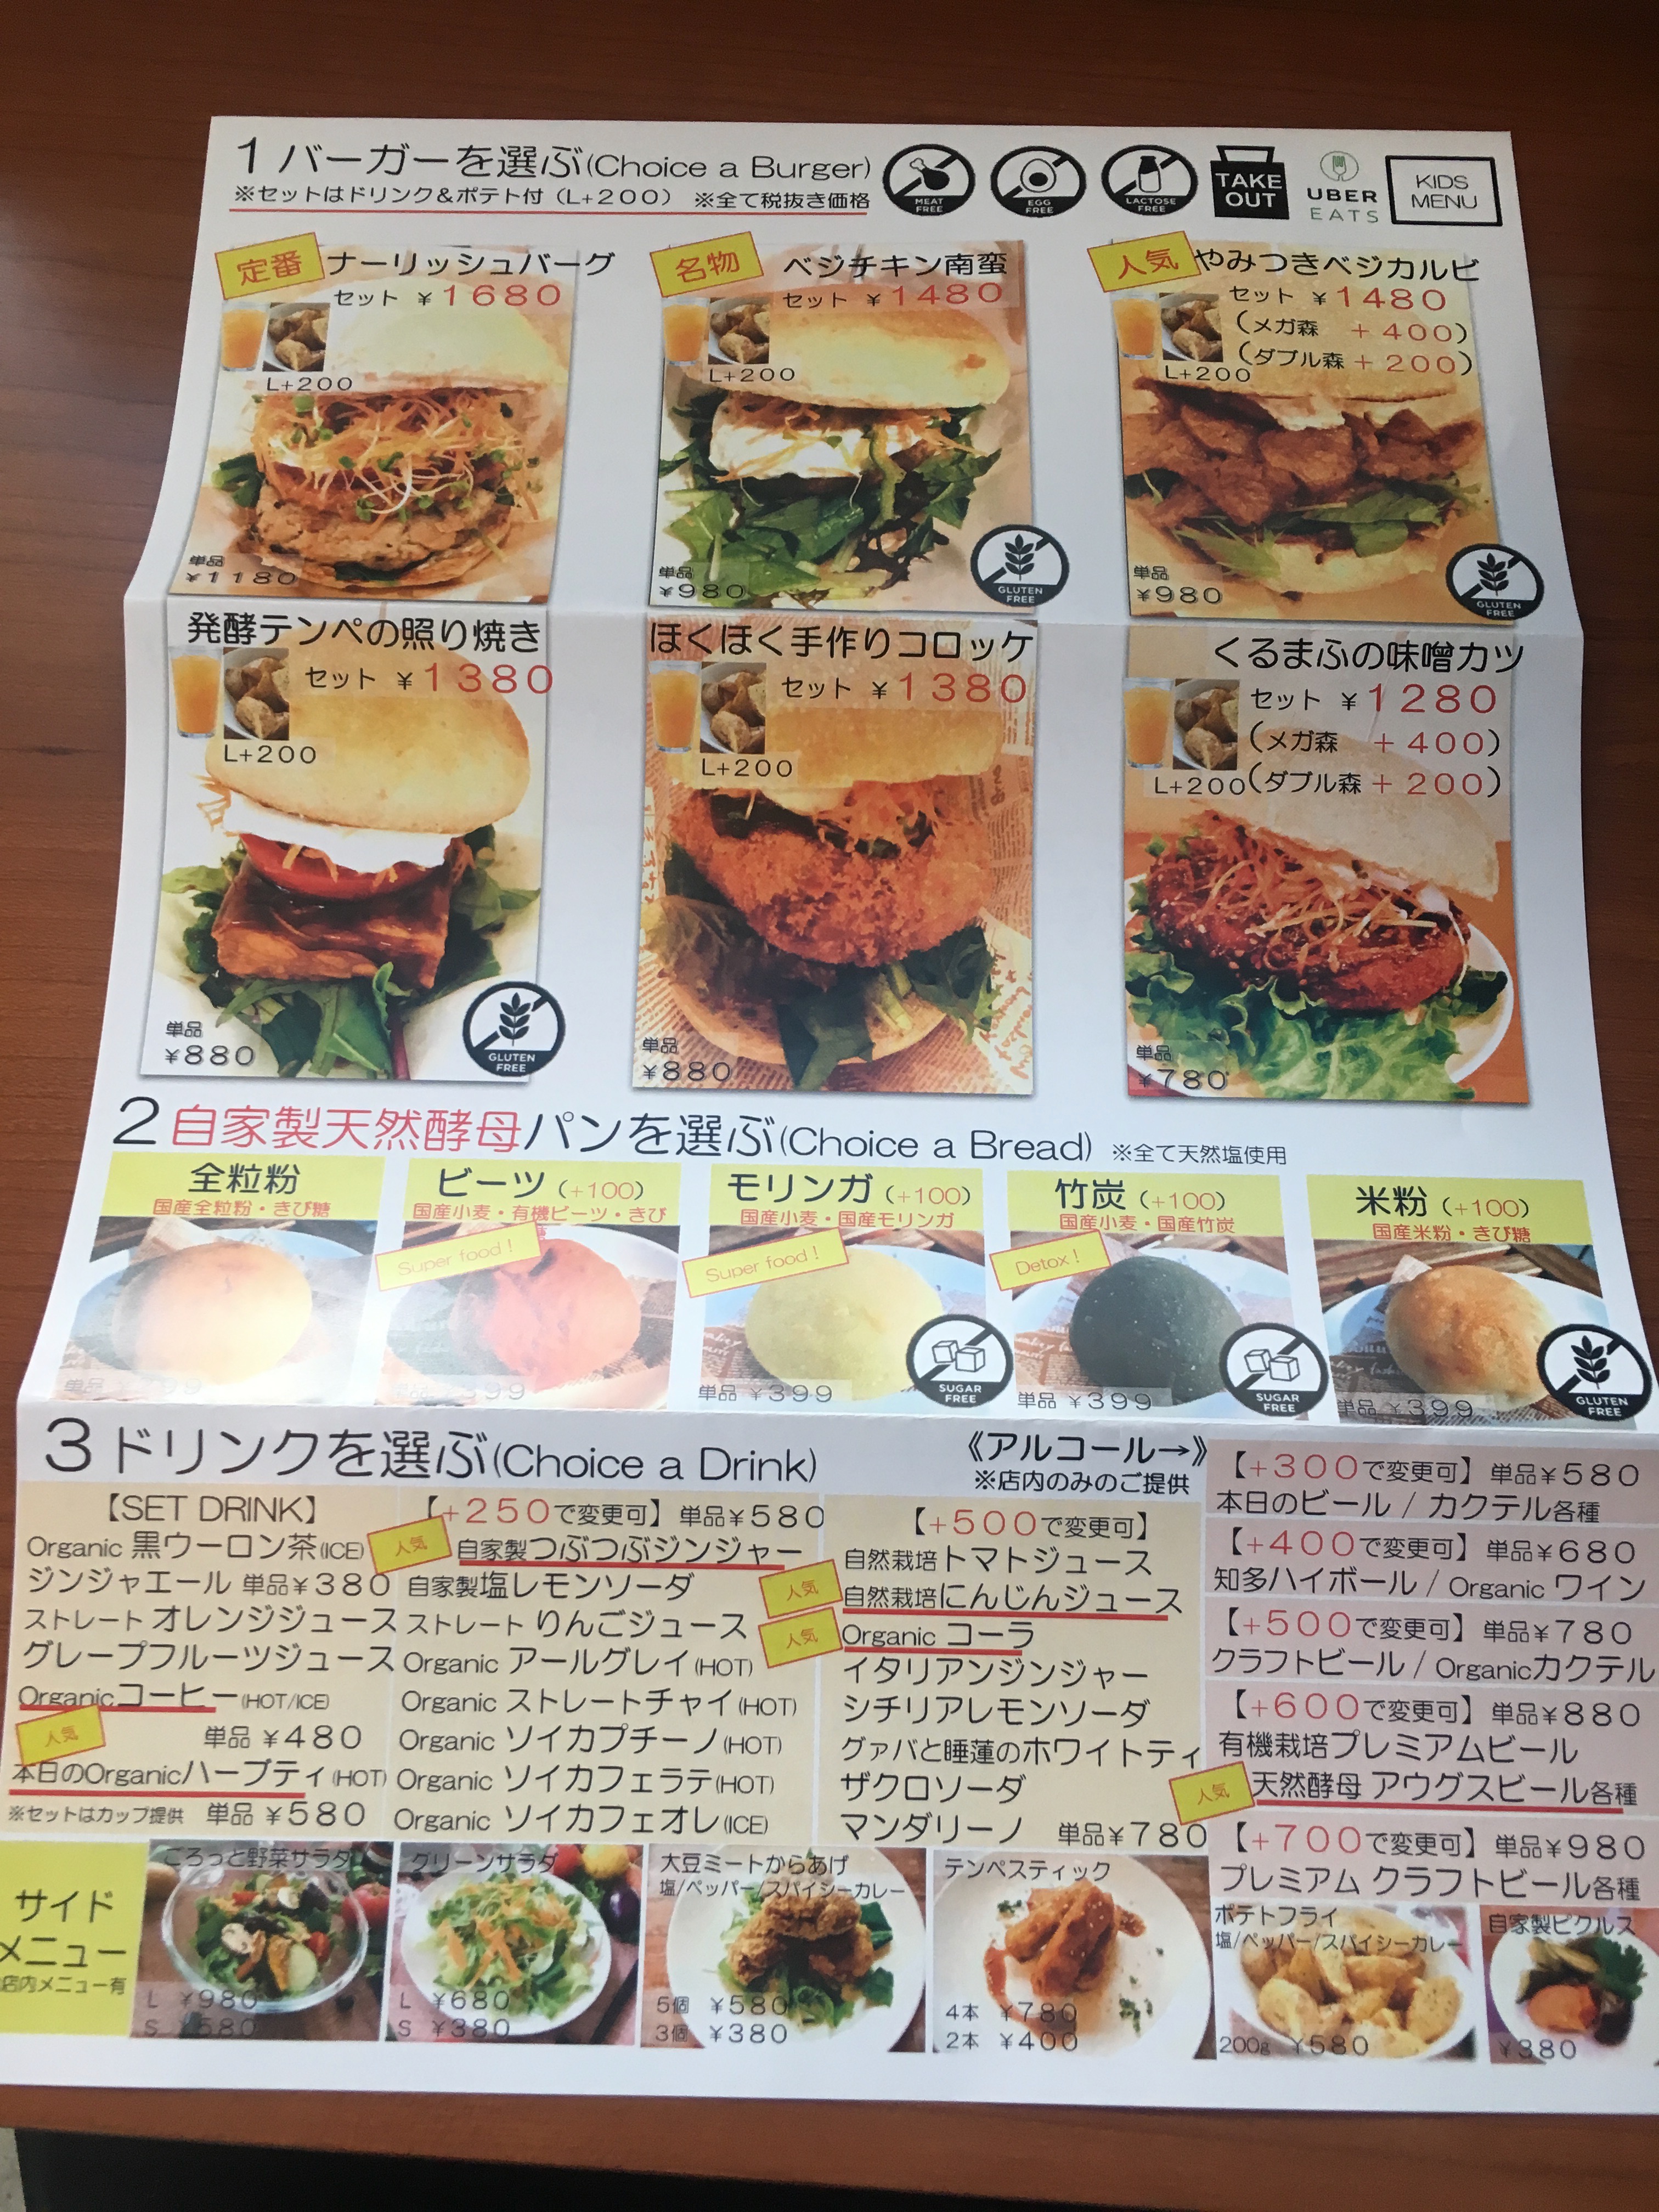 1 バーガーを選ぶ(Choice a Burger)
※セットはドリンク&ポテト付（L+200） ※全て税抜き価格
MEAT FREE
EGG FREE
LACTOSE FREE
TAKE OUT
UBER EATS
KIDS MENU
定番 ナーリッシュバーグ
セット ￥1680
L+200
単品
￥1180
名物 ベジチキン南蛮
セット ￥1480
L+200
単品
￥980
GLUTEN FREE
人気 やみつきベジカルビ
セット ￥1480
(メガ森 +400)
(ダブル森 +200)
L+200
単品
￥980
GLUTEN FREE
発酵テンペの照り焼き
セット ￥1380
L+200
単品
￥880
GLUTEN FREE
ほくほく手作りコロッケ
セット ￥1380
L+200
単品
￥880
くるまふの味噌カツ
セット ￥1280
(メガ森 +400)
L+200(ダブル森 +200)
単品
￥780
2 自家製天然酵母パンを選ぶ(Choice a Bread) ※全て天然塩使用
全粒粉
国産全粒粉・きび糖
単品
ビーツ (+100)
国産小麦・有機ビーツ・きび
糖
Super food !
モリンガ (+100)
国産小麦・国産モリンガ
Super food !
単品 ￥399
SUGAR FREE
竹炭 (+100)
国産小麦・国産竹炭
Detox !
単品 ￥399
SUGAR FREE
米粉 (+100)
国産米粉・きび糖
単品 ￥399
GLUTEN FREE
3 ドリンクを選ぶ(Choice a Drink)
【SET DRINK】
Organic 黒ウーロン茶(ICE)
ジンジャエール 単品￥380
ストレート オレンジジュース
グレープフルーツジュース
Organicコーヒー(HOT/ICE)
人気 単品 ￥480
本日のOrganicハーブティ(HOT)
※セットはカップ提供 単品 ￥580
【+250で変更可】単品￥580
人気 自家製つぶつぶジンジャー
自家製塩レモンソーダ
ストレート りんごジュース
Organic アールグレイ(HOT)
Organic ストレートチャイ(HOT)
Organic ソイカプチーノ(HOT)
Organic ソイカフェラテ(HOT)
Organic ソイカフェオレ(ICE)
《アルコール→》
※店内のみのご提供
【+500で変更可】
自然栽培トマトジュース
人気 自然栽培にんじんジュース
人気 Organic コーラ
イタリアンジンジャー
シチリアレモンソーダ
グァバと睡蓮のホワイトティ
ザクロソーダ
マンダリーノ 単品￥780
【+300で変更可】単品￥580
本日のビール / カクテル各種
【+400で変更可】単品￥680
知多ハイボール / Organic ワイン
【+500で変更可】単品￥780
クラフトビール / Organicカクテル
【+600で変更可】単品￥880
有機栽培プレミアムビール
人気 天然酵母 アウグスビール各種
【+700で変更可】単品￥980
プレミアム クラフトビール各種
サイド
メニュー
店内メニュー有
ごろっと野菜サラダ
L ￥980
S ￥580
グリーンサラダ
L ￥680
S ￥380
大豆ミートからあげ
塩/ペッパー/スパイシーカレー
5個 ￥580
3個 ￥380
テンペスティック
4本 ￥780
2本 ￥400
ポテトフライ
塩/ペッパー/スパイシーカレー
200g ￥580
自家製ピクルス
￥380